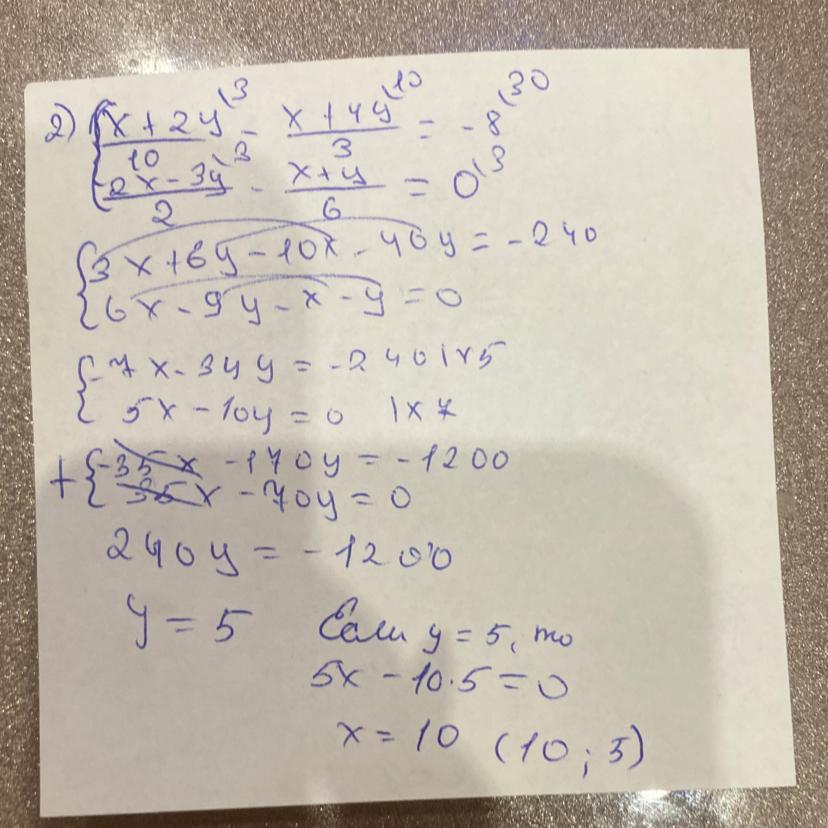 2) { x + 2y \3 / 10 - x + 4y \10 / 3 = -8 \30
2x - 3y \3 / 2 - x + y / 6 = 0 \3
{ 3x + 6y - 10x - 40y = -240
6x - 9y - x - y = 0
{ -7x - 34y = -240 | x5
5x - 10y = 0 | x 7
+ { -35x - 170y = -1200
35x - 70y = 0
240y = -1200
y = 5 Если y = 5, то
5x - 10·5 = 0
x = 10 (10 ; 5)